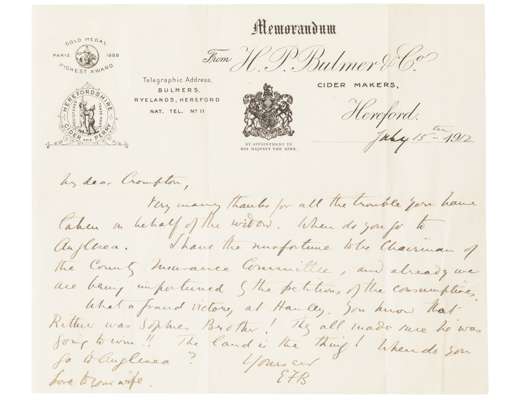 Memorandum
GOLD MEDAL
PARIS 1888
HIGHEST AWARD
From H. P. Bulmer & Co.
Telegraphic Address,
BULMERS,
RYELANDS, HEREFORD
NAT. TEL. No 11
CIDER MAKERS,
HEREFORDSHIRE
CIDER AND PERRY
Hereford.
BY APPOINTMENT TO
HIS MAJESTY THE KING.
July 15th 1912
My dear Crompton,
Very many thanks for all the trouble you have
taken on behalf of the widow. When do you go to
Anglesea. I have the misfortune to be Chairman of
the County Insurance Committee, and already we
are being importuned by the petitions of the consumptives.
What a grand victory at Hanley. You know that
was Sophie's Brother! They all made sure he was
going to win!! The land is the thing! When do you
go to Anglesea? Yours ever
love to your wife. EFB